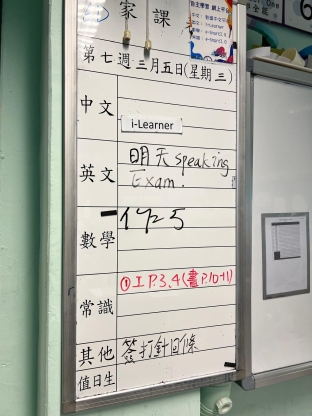 家課
第七週三月五日(星期三)
中文
i-Learner
英文
明天speaking
Exam.
數學
常識
①工P.3,4(書P.10-11)
其他
簽打針回條
值日生